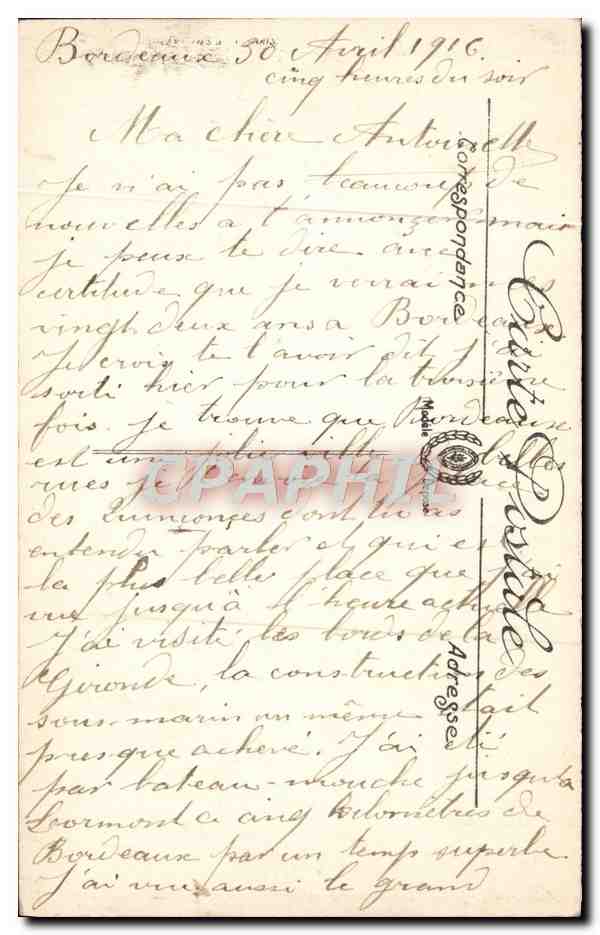 Bordeaux 30 Avril 1916
cinq heures du soir
Ma chère Antoinette
Je n'ai pas beaucoup de
nouvelles a t'annoncer mais
je peux te dire avec
certitude que je verrai mes
vingt deux ans a Bordeaux
Je crois te l'avoir dit j'
sorti hier pour la troisième
fois. je trouve que Bordeaux
est une jolie ville
rues je
des Quinconces dont tu as
entendu parler et qui est
la plus belle place que j'ai
vue jusqu'à l'heure actuelle
J'ai visité les bords de la
Gironde, la construction des
sous-marin un même était
presque achevé. J'ai été
par bateau-mouche jusqu'à
Lormont a cinq kilomètres de
Bordeaux par un temps superbe
J'ai vu aussi le grand
Carte Postale
Correspondance
Adresse
Modèle
CPAPHIL